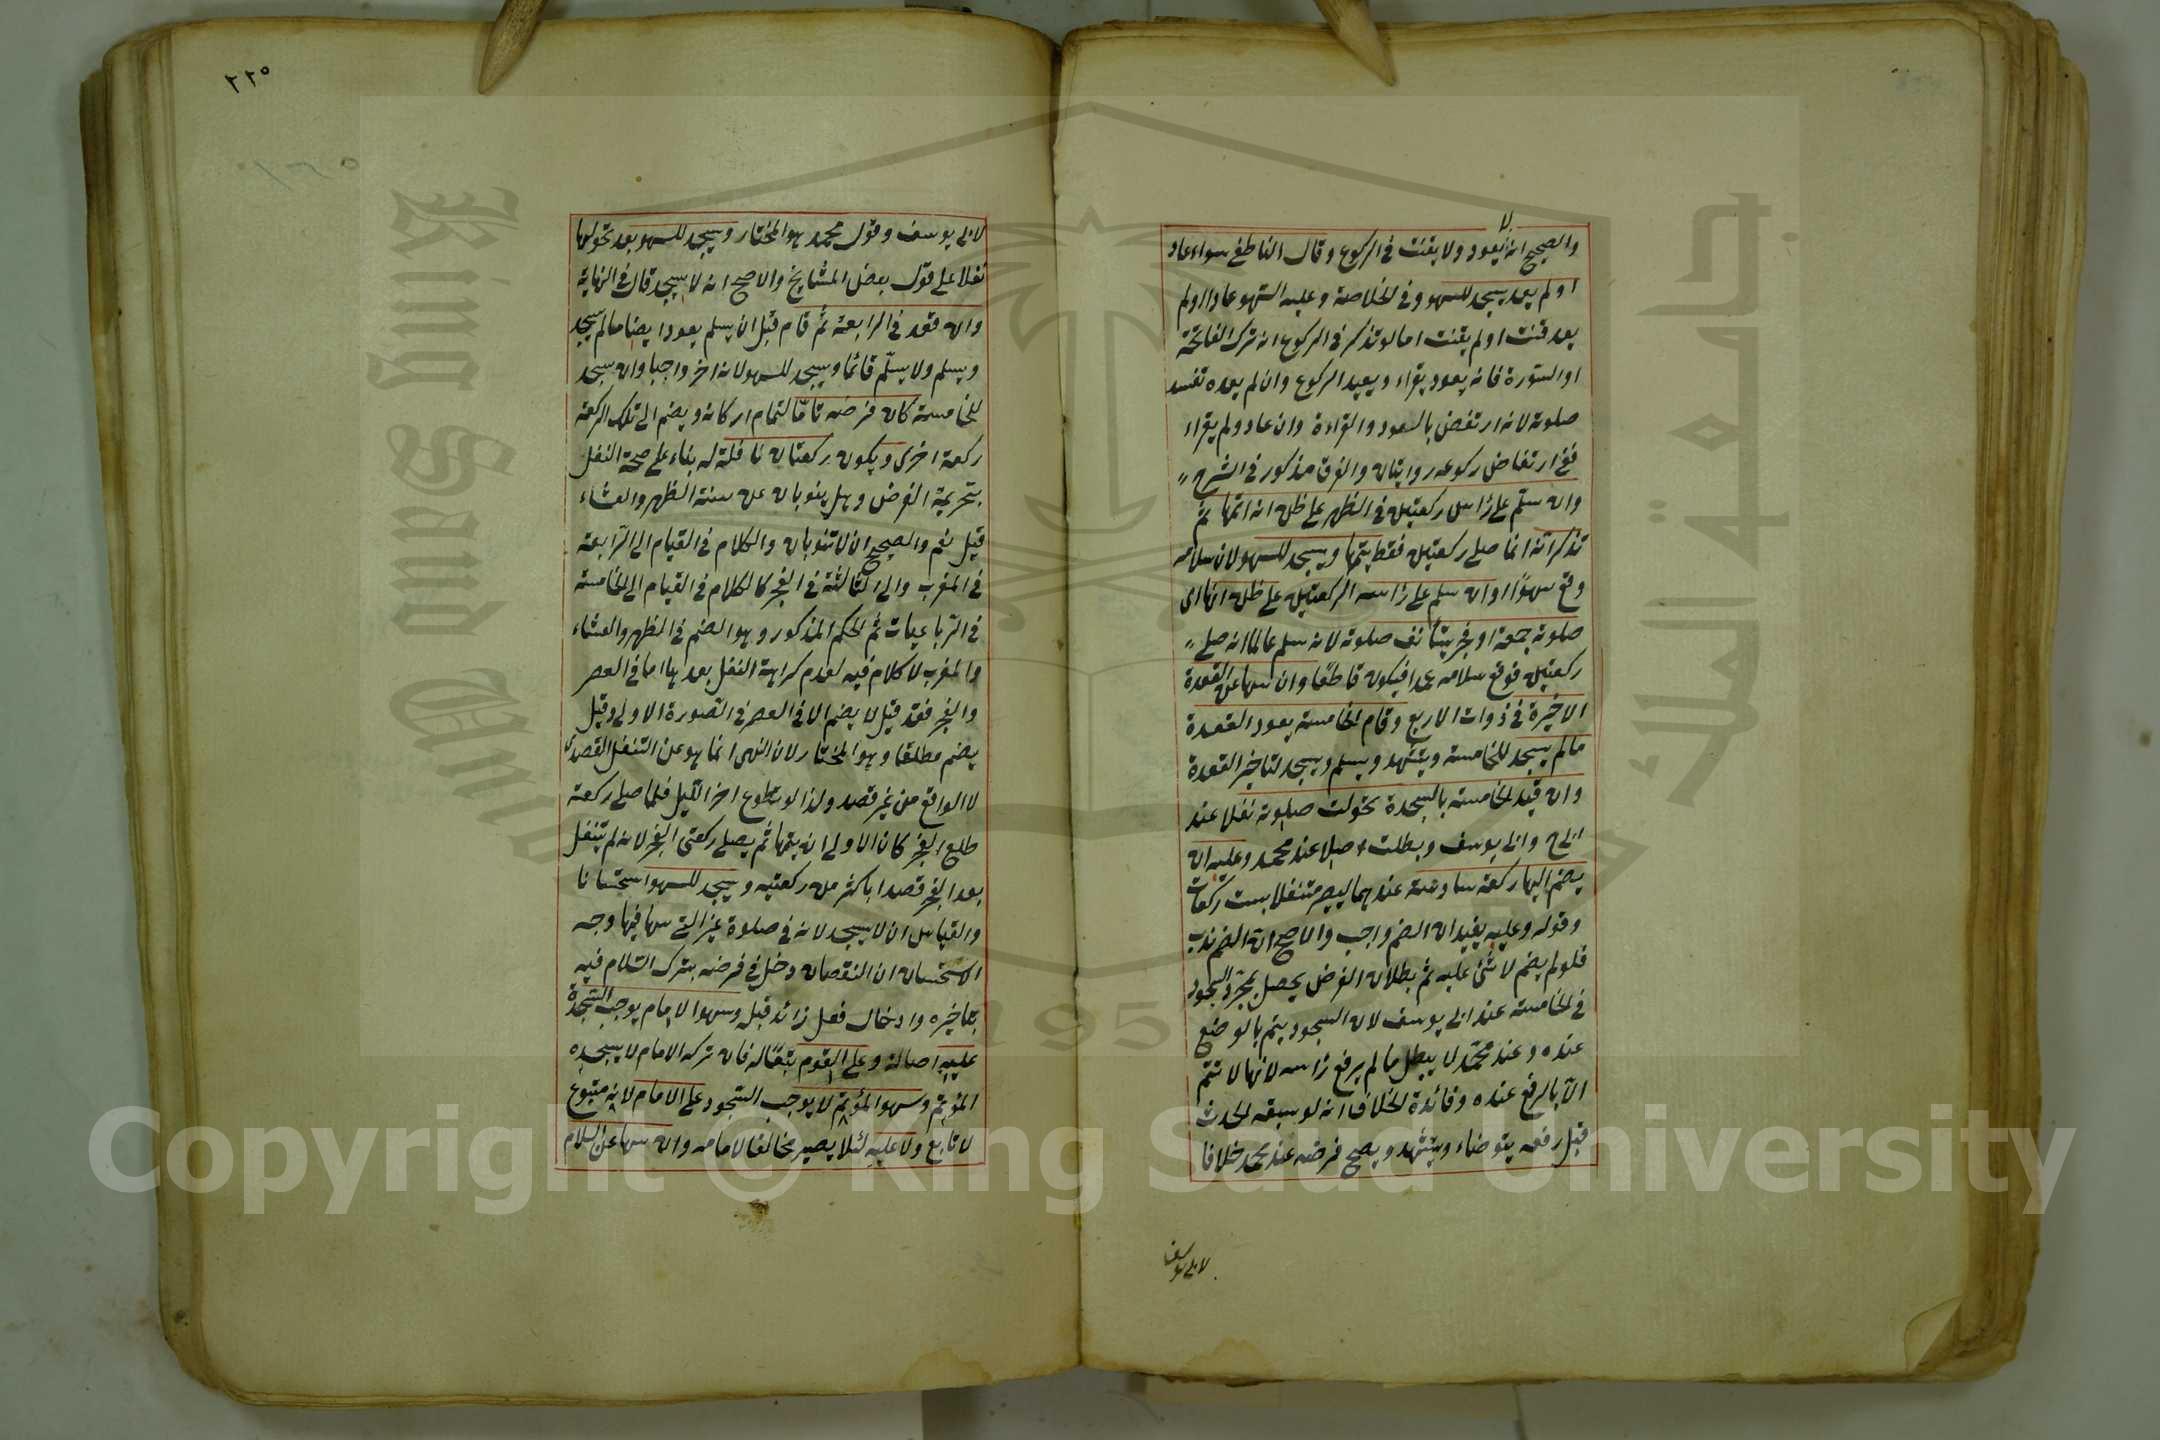 لا
والصحيح انه يعود ولا يقنت في الركوع وقال الناطفي سواء عاد
او لم يعد يسجد للسهو وفي الخلاصة وعليه السهو عاد او لم
يعد قنت او لم يقنت اما لو تذكر في الركوع انه ترك الفاتحة
او السورة فانه يعود يقراء ويعيد الركوع وان لم يعده تفسد
صلوته لانه ارتفض بالعود والقراءة وان عاد ولم يقراء
ففي ارتفاض ركوعه روايتان والفرق مذكور في الشرح
وان سلم على راس ركعتين في الظهر على ظن انه اتمها ثم
تذكر انه انما صلى ركعتين فقط يتمها ويسجد للسهو لان سلامه
وقع سهوا وان سلم على راس الركعتين على ظن انها اى
صلوته جمعة او فجر يستأنف صلوته لانه سلم عالما انه صلى
ركعتين فوقع سلامه عمدا فيكون قاطعا وان سها عن القعدة
الاخيرة في ذوات الاربع وقام الخامسة يعود القعدة
مالم يسجد للخامسة ويتشهد ويسلم ويسجد لتاخير القعدة
وان قيد الخامسة بالسجدة تحولت صلوته نفلا عند
ابى ح وابى يوسف وبطلت اصلا عند محمد وعليه ان
يضم اليها ركعة سادسة عندهما ليصير متنفلا بست ركعات
وقوله وعليه يفيد ان الضم واجب والاصح ان الضم ندب
فلو لم يضم لا شئ عليه ثم بطلان الفرض يحصل بمجرد السجود
في الخامسة عند ابى يوسف لان السجود يتم بالوضع
عنده وعند محمد لا يبطل مالم يرفع راسه لانها لا تتم
الا بالرفع عنده وفائدة الخلاف انه لو سبقه الحدث
قبل رفعه يتوضاء ويتشهد ويصح فرضه عند محمد خلافا
لابى يوسف
٢٢٥
لابى يوسف وقول محمد هو المختار ويسجد للسهو بعد تحولها
نفلا على قول بعض المشايخ والاصح انه لا يسجد قال في النهاية
وان قعد في الرابعة ثم قام قبل ان يسلم يعود ايضا مالم يسجد
ويسلم ولا يسلم قائما ويسجد للسهو لانه اخر واجبا وان سجد
للخامسة كان فرضه تاما لتمام اركانه ويضم الى تلك الركعة
ركعة اخرى ويكون ركعتان نافلة له بناء على صحة النفل
بتحريمة الفرض وهل ينوبان عن سنة الظهر والعشاء
قيل نعم والصحيح ان لا تنوبان والكلام في القيام الى الرابعة
في المغرب والى الثالثة في الفجر كالكلام في القيام الى الخامسة
في الرباعيات ثم الحكم المذكور وهو الضم في الظهر والعشاء
والمغرب لا كلام فيه لعدم كراهة النفل بعدها اما في العصر
والفجر فقد قيل لا يضم الا في العصر في الصورة الاولى وقيل
يضم مطلقا وهو المختار لان النهى انما هو عن التنفل القصدى
لا الواقع من غير قصد ولذا لو تطوع اخر الليل فلما صلى ركعة
طلع الفجر كان الاولى ان يتمها ثم يصلى ركعتى الفجر لانه لم يتنفل
بعد الفجر قصدا باكثر من ركعتيه ويسجد للسهو استحسانا
والقياس ان لا يسجد لانه في صلوة غير التي سها فيها وجه
الاستحسان ان النقصان دخل في فرضه بترك السلام فيه
بتاخيره وادخال فعل زائد قبله وسهو الامام يوجب السجدة
عليه اصالة وعلى القوم تبعا له فان تركه الامام لا يسجده
المؤتم وسهو المؤتم لا يوجب السجود على الامام لانه متبوع
لا تابع ولا عليه لئلا يصير مخالفا لامامه وان سها عن السلام
King Saud University
جامعة الملك سعود
195
Copyright © King Saud University